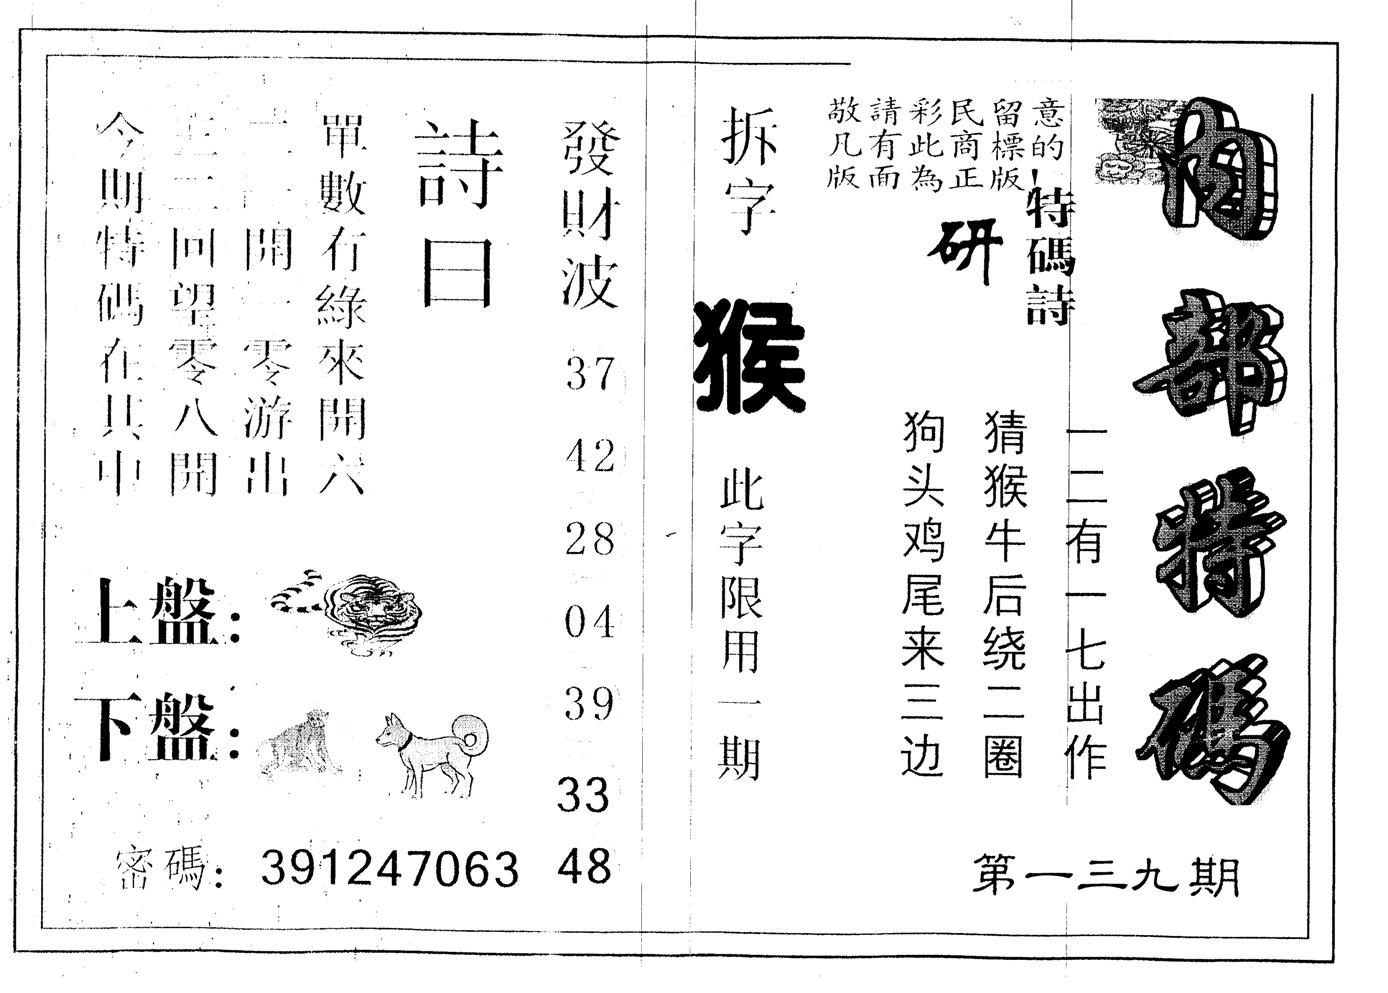 内部特碼
第一三九期
敬請彩民留意
凡有此商標的
版面為正版!
特碼詩
研
一二有一七出作
猜猴牛后绕二圈
狗头鸡尾来三边
拆字
猴
此字限用一期
發財波
37
42
28
04
39
33
48
詩曰
單數有綠來開六
開一零游出
三二回望零八開
今期特碼在其中
上盤:
下盤:
密碼: 391247063